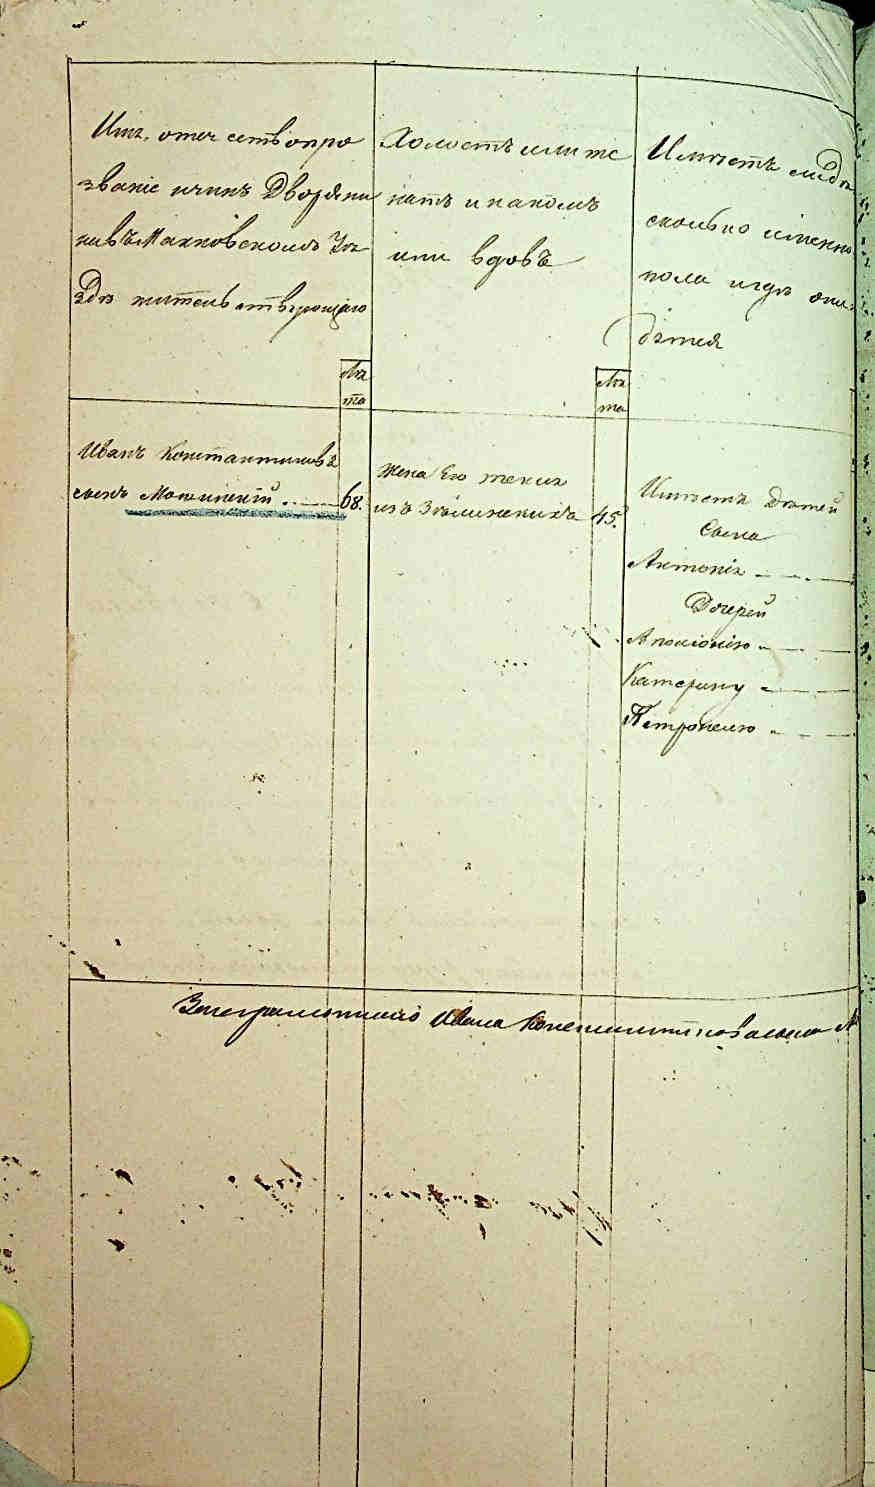 Имя, отечествопро
звание ичинъ Дворяни
навъ Махновскомъ Уѣ
здѣ жительствующаго
Лѣ
та
Холостъ или же
натъ и накомъ
или вдовъ
Лѣ
та
Имѣетъ лидѣ
сколько имянно
пола игдѣ они
дѣтей
Иванъ Константиновъ
сынъ Мошинский 68.
Жена Его Текля
изъ Зѣлинскихъ 45.
Имѣетъ Дѣтей
Сына
Антонія
Дочерей
Аполонію
Катерину
Петронелю
Занеграмотнаго Ивана Константиновасына